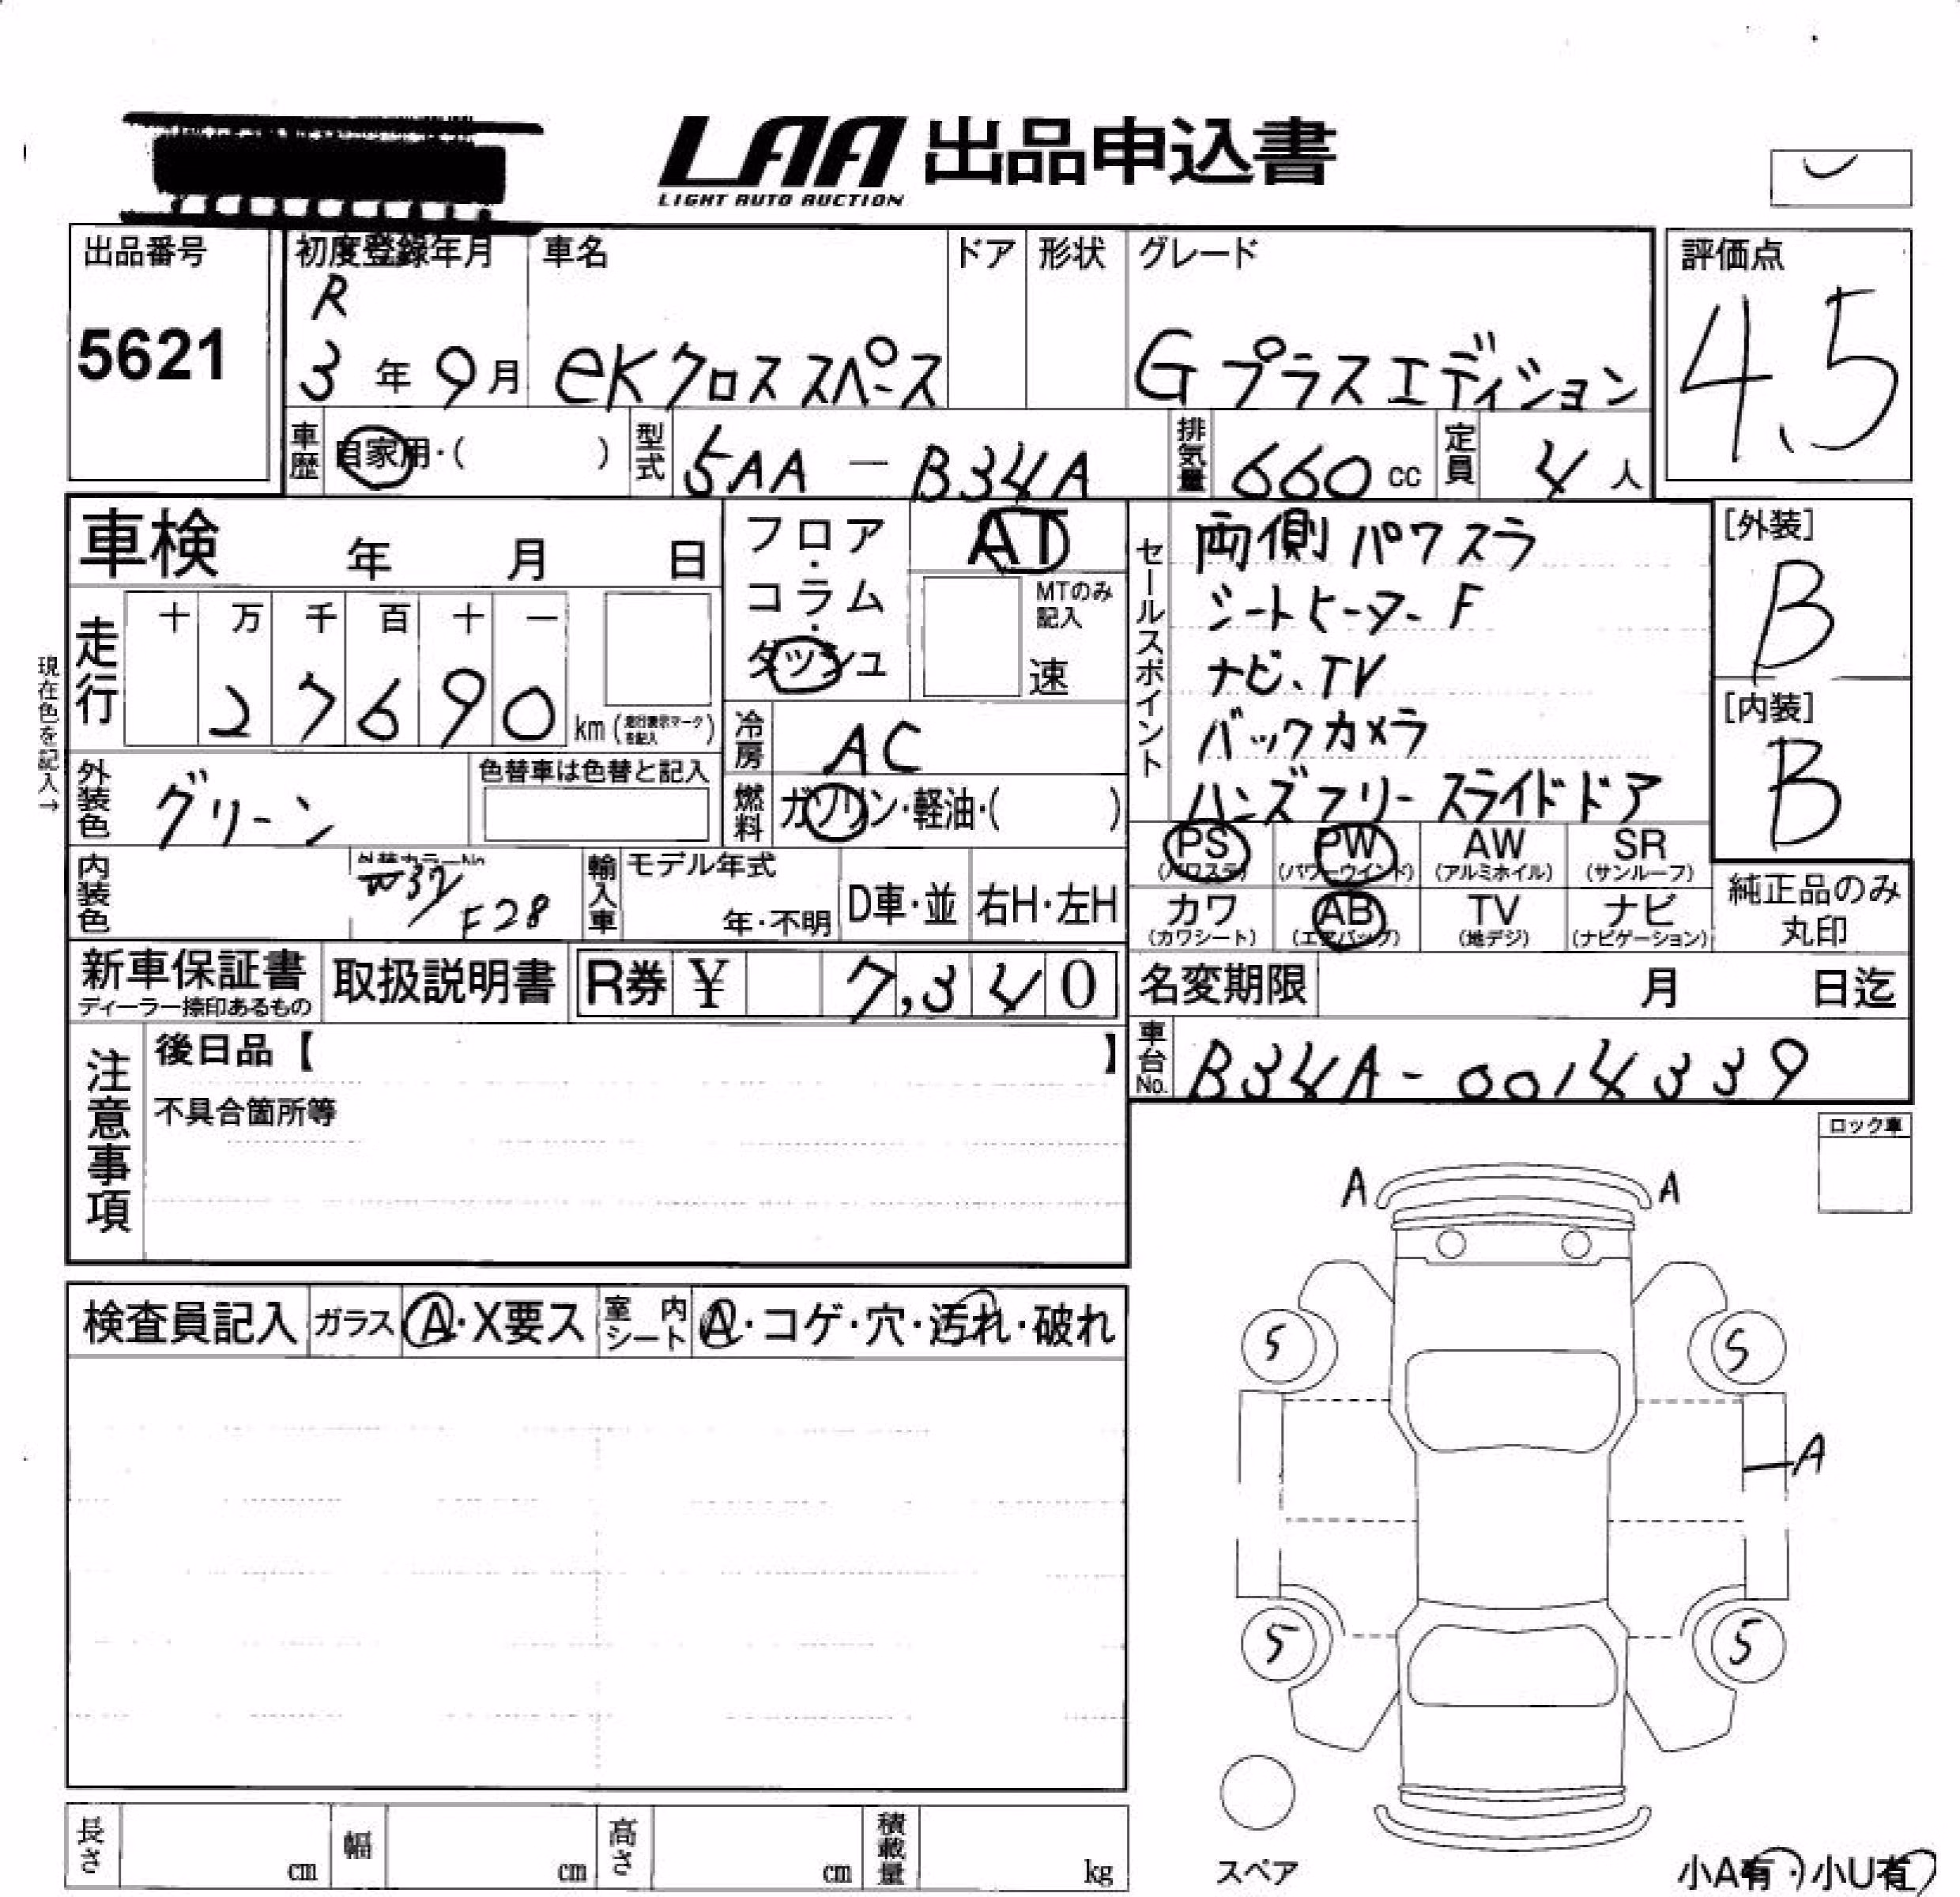 LAA 出品申込書
LIGHT AUTO AUCTION
出品番号 初度登録年月 車名 ドア 形状 グレード 評価点
5621 R 3年 9月 eKクロス スペース Gプラスエディション 4.5
車歴 自家用・( ) 型式 5AA-B34A 排気量 660 cc 定員 4人
車検 年 月 日
フロア・コラム・ダッシュ AT
MTのみ記入 速
セールスポイント
両側パワスラ
シートヒーターF
ナビ、TV
バックカメラ
ハンズフリースライドドア
[外装]
B
[内装]
B
現在色を記入→
走行 十 万 千 百 十 一
2 7 6 9 0 km (走行表示マークを記入)
冷房 AC
外装色 グリーン 色替車は色替と記入
燃料 ガソリン・軽油・( )
PS (パワステ) PW (パワーウインド) AW (アルミホイル) SR (サンルーフ)
カワ (カワシート) AB (エアバッグ) TV (地デジ) ナビ (ナビゲーション)
純正品のみ
丸印
内装色 外装カラーNo. W32 F28
輸入車 モデル年式 年・不明 D車・並 右H・左H
新車保証書 ディーラー捺印あるもの 取扱説明書 R券 ¥ 7,340
名変期限 月 日迄
車台No. B34A-0014339
注意事項
後日品【 】
不具合箇所等
ロック車
A A
検査員記入 ガラス A・X要ス 室内シート A・コゲ・穴・汚れ・破れ
5 5
A
5 5
スペア
小A有・小U有
長さ cm 幅 cm 高さ cm 積載量 kg